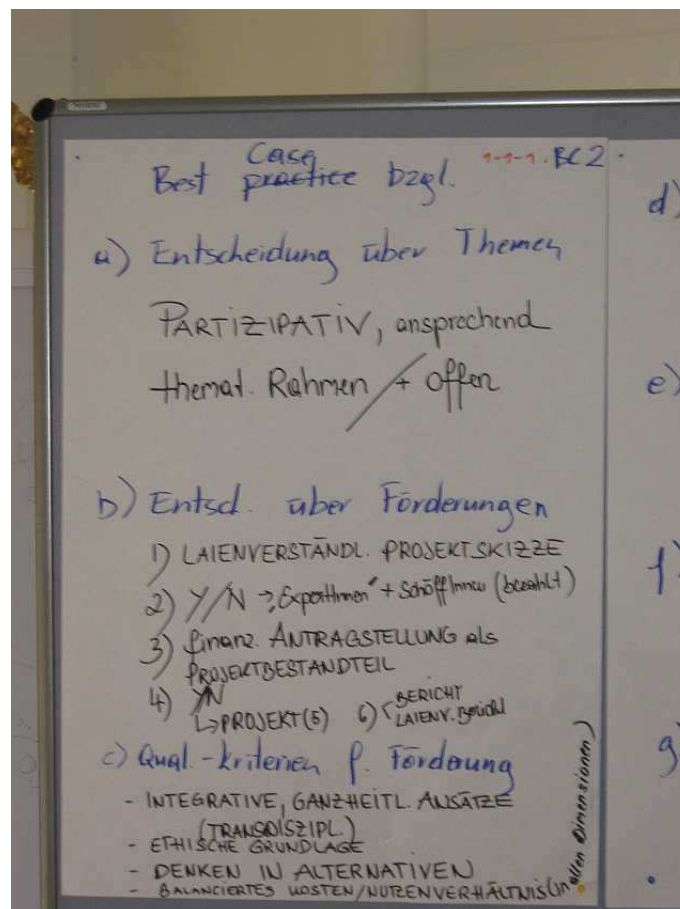 Case 1-1-1. BC2
Best practice bzgl.
a) Entscheidung über Themen
PARTIZIPATIV, ansprechend
themat. Rahmen / + Offen
b) Entsch. über Förderungen
1) LAIENVERSTÄNDL. PROJEKTSKIZZE
2) Y/N → "ExpertInnen" + SchöffInnen (bezahlt)
3) finanz. ANTRAGSTELLUNG als
PROJEKTBESTANDTEIL
4) Y/N
↳ PROJEKT (5) 6) BERICHT
LAIENV. Bericht
c) Qual.-kriterien f. Förderung
- INTEGRATIVE, GANZHEITL. ANSÄTZE
(TRANSDISZIPL.)
- ETHISCHE GRUNDLAGE
- DENKEN IN ALTERNATIVEN
- BALANCIERTES KOSTEN/NUTZENVERHÄLTNIS (in
allen Dimensionen)
d)
e)
f)
g)